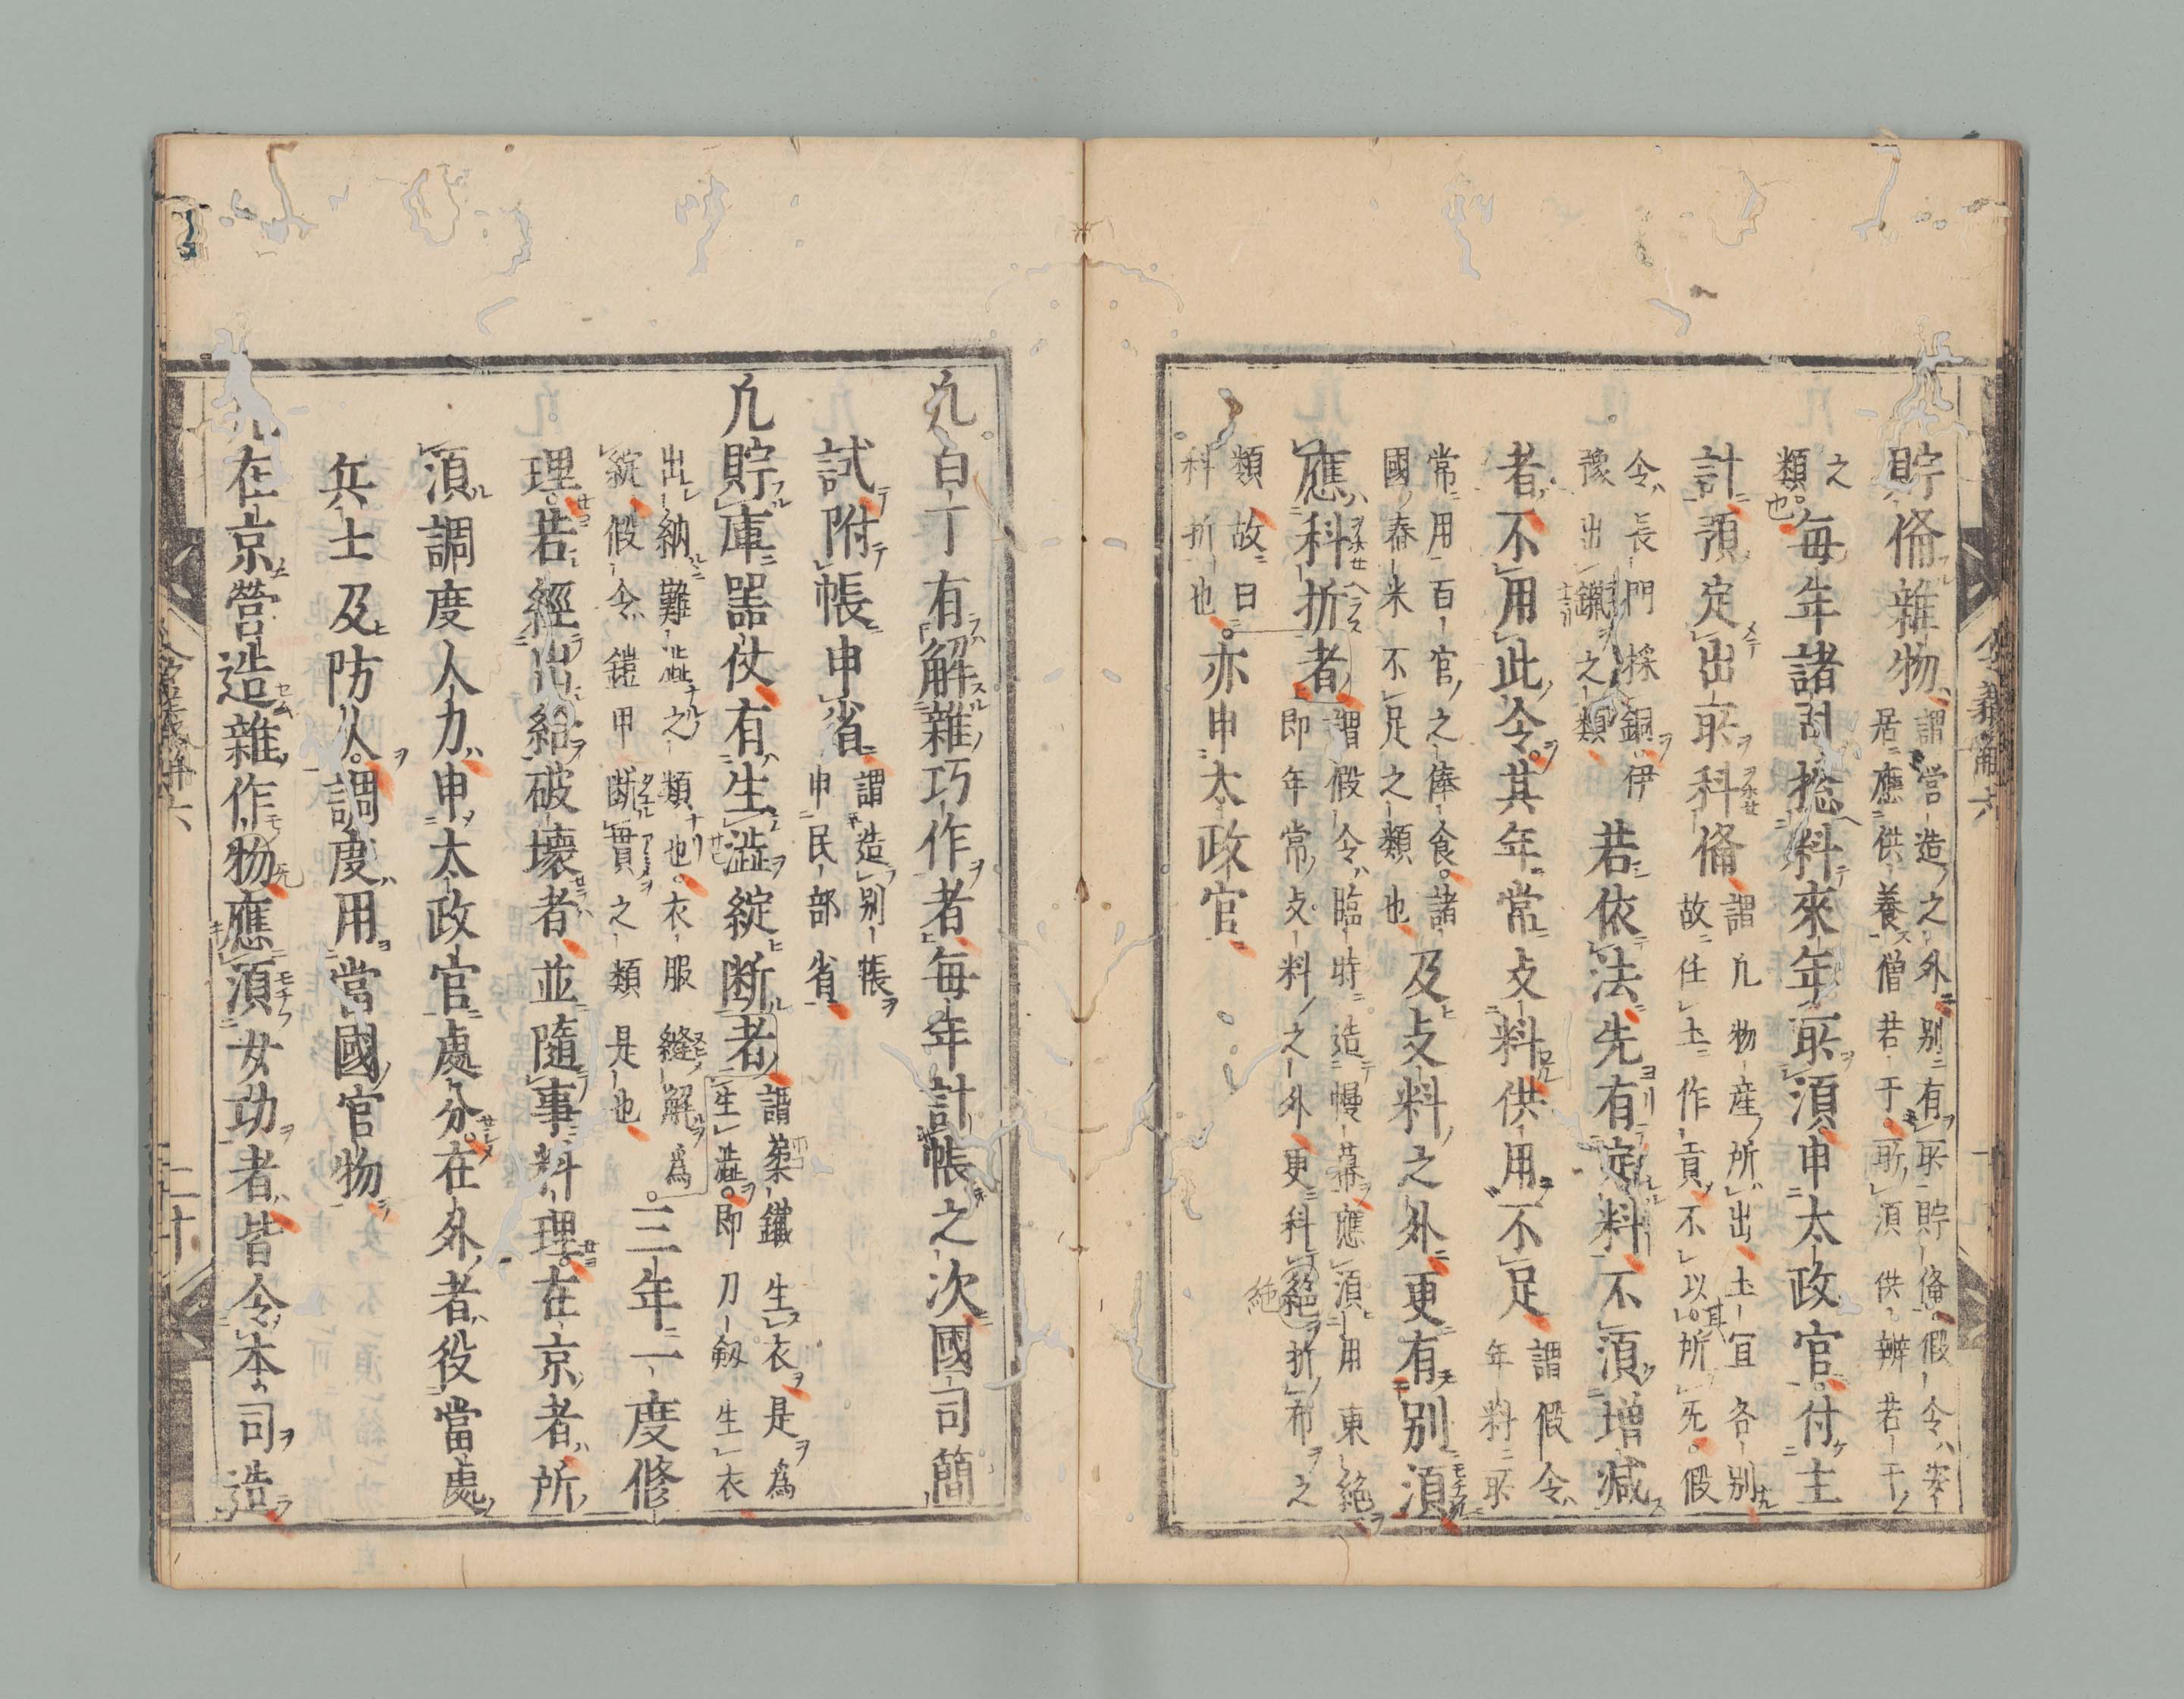 貯俻雜物謂營造之外別有取貯俻假令安
居應供養僧若干所須供辨若干
之
類也每年諸司捴料來年所須申太政官付主
計預定出所科俻謂凢物產所出土宜各別
故任土作貢不以其所无假
令長門採銅伊
豫出鑞之類若依法先有定料不須增減
者不用此令其年常攴料供用不足謂假令
年料所
常用百官之俸食諸
國舂米不足之類也及攴料之外更有別須
應科折者謂假令臨時造幔幕應須用東絁
即年常攴料之外更科絁折布之
類故曰
科折也亦申太政官
令義解六
凢白丁有解雜巧作者每年計帳之次國司簡
試附帳申省謂造別帳
申民部省
凢貯庫噐仗有生澁綻断者謂槊鐵生衣是爲
生澁即刀剱生衣
出納難澁之類也衣服縫解爲
綻假令鎧甲断貫之類是也三年一度修
理若經出給破壞者並隨事料理在京者所
須調度人力申太政官處分在外者役當處
兵士及防人調度用當國官物
凢在京營造雜作物應須女功者皆令本司造
令義解六
二十